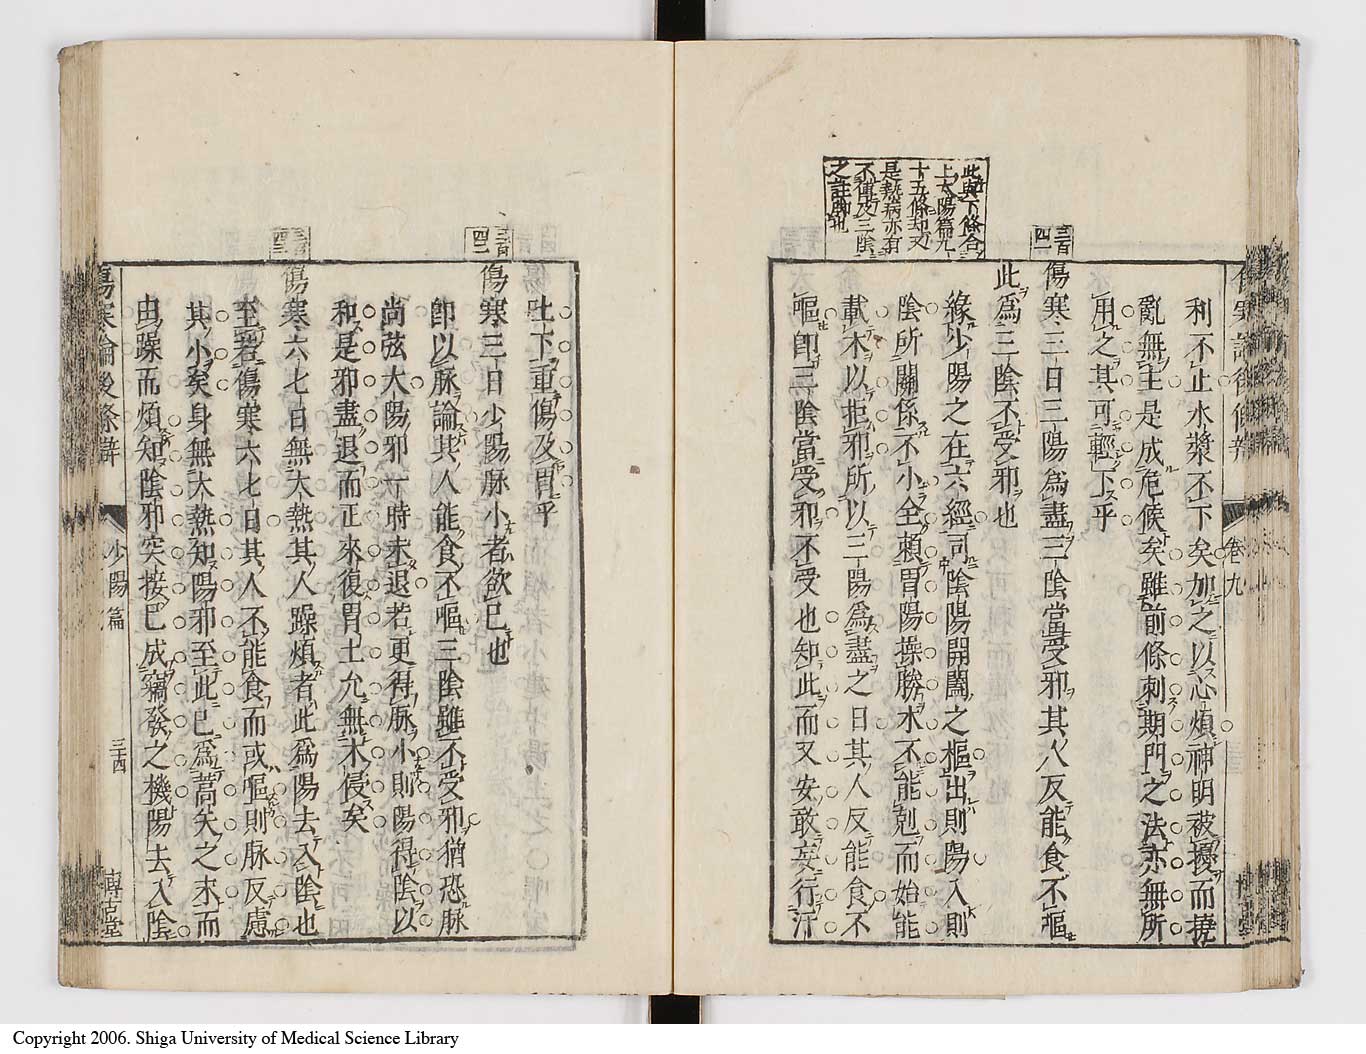 利不止水漿不下矣加之以心煩神明被擾而撓
亂無主是成危候矣雖前條刺期門之法亦無所
用之其可輕下乎
三百四一
傷寒三日三陽爲盡三陰當受邪其人反能食不嘔
此爲三陰不受邪也
此與下條合
上太陽篇九
十五條却又
是熱病亦有
不傳及三陰
之註脚也
緣少陽之在六經司陰陽開闔之樞出則陽入則
陰所關係不小全賴胃陽操勝木不能剋而始能
載木以拒邪所以三陽爲盡之日其人反能食不
嘔卽三陰當受邪不受也知此而又安敢妄行汗
卷九
吐下重傷及胃乎
三百四二
傷寒三日少陽脉小者欲已也
卽以脉論其人能食不嘔三陰雖不受邪猶恐脉
尚弦大陽邪一時未退若更得脉小則陽得陰以
和是邪盡退而正來復胃土允無木侵矣
三百四三
傷寒六七日無大熱其人躁煩者此爲陽去入陰也
至若傷寒六七日其人不能食而或嘔則脉反慮
其小矣身無大熱知陽邪至此已爲蒿矢之末而
由躁而煩知陰邪突接已成竊發之機陽去入陰
傷寒論後條辨
少陽篇
三十四
博古堂
Copyright 2006. Shiga University of Medical Science Library